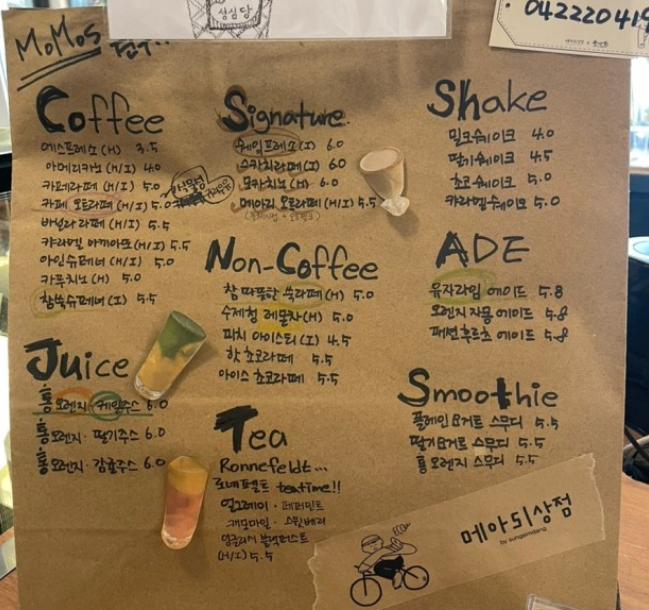 성심당
042220419
MoMos
Coffee
에스프레소 (H) 3.5
아메리카노 (H/I) 4.0
카페라떼 (H/I) 5.0
카페 오트라떼 (H/I) 5.0
바닐라 라떼 (H/I) 5.5
캬라멜 마끼아또 (H/I) 5.5
아인슈페너 (H) 5.0
카푸치노 (H) 5.0
참쑥슈페너 (I) 5.5
Signature
케일프레소 (I) 6.0
(I) 6.0
모카치노 (H) 6.0
메아리 오트라떼 (H/I) 5.5
Shake
밀크쉐이크 4.0
딸기쉐이크 4.5
초코쉐이크 5.0
캬라멜쉐이크 5.0
Non-Coffee
참 따뜻한 쑥라떼 (H) 5.0
수제청 레몬차 (H) 5.0
피치 아이스티 (I) 4.5
핫 초코라떼 5.5
아이스 초코라떼 5.5
ADE
유자라임 에이드 5.8
오렌지 자몽 에이드 5.8
패션후르츠 에이드 5.8
Juice
통·오렌지·케일주스 6.0
통·오렌지·딸기주스 6.0
통·오렌지·감귤주스 6.0
Tea
Ronnefeldt...
로네펠트 teatime!!
얼그레이·페퍼민트
캐모마일·스윗베리
잉글리쉬 블랙퍼스트
(H/I) 5.5
Smoothie
플레인 요거트 스무디 5.5
딸기요거트 스무디 5.5
통 오렌지 스무디 5.5
메아리상점
by sungsimdang